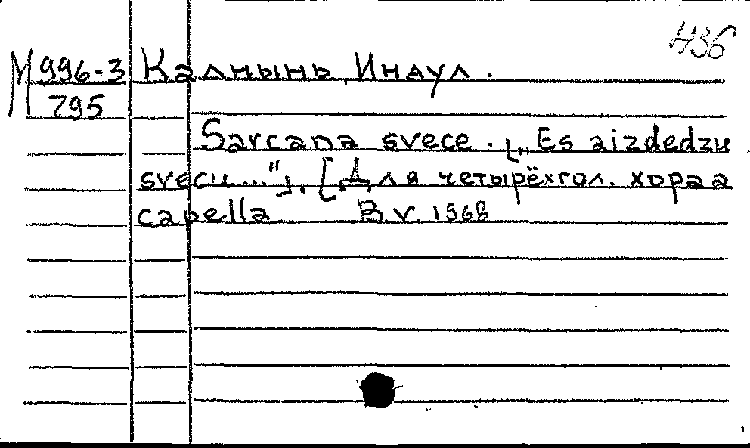 436
М 996-3 Калнынь, Индул.
795
Sarcana svece. [„Es aizdedzu
svecu..."]. [Для четырёхгол. хора a
capella B. v. 1968